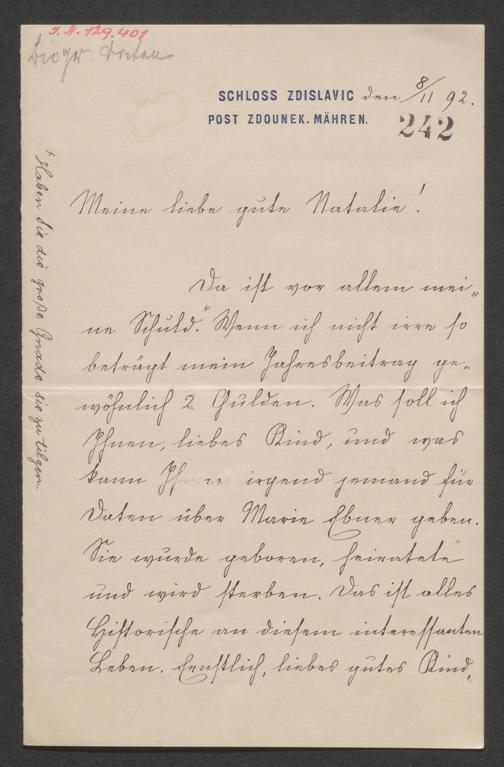 J. N. 129.401
SCHLOSS ZDISLAVIC den 8/11 92.
POST ZDOUNEK. MÄHREN.
242
Meine liebe gute Natalie!
Da ist vor allem mei-
ne Schuld.* Wenn ich nicht irre so
beträgt mein Jahresbeitrag ge-
wöhnlich 2 Gulden. Was soll ich
Ihnen, liebes Kind, und was
kann Ihnen irgend jemand für
Daten über Marie Ebner geben.
Sie wurde geboren, heiratete
und wird sterben. Das ist alles
Historische an diesem interessanten
Leben. Ernstlich, liebes gutes Kind,
* Haben Sie die große Gnade sie zu tilgen.